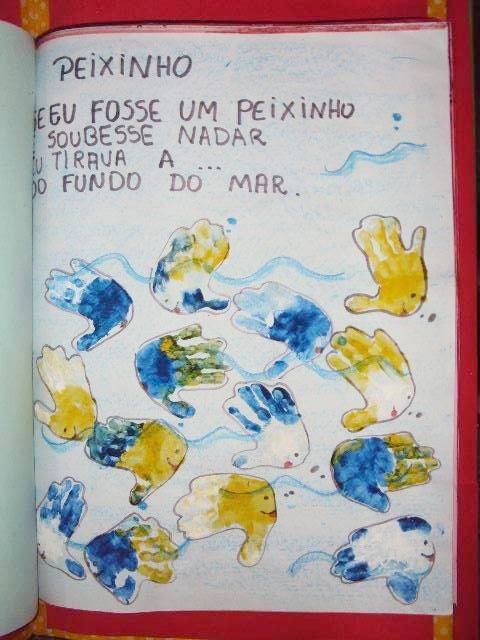 PEIXINHO
SE EU FOSSE UM PEIXINHO
SOUBESSE NADAR
EU TIRAVA A ...
DO FUNDO DO MAR.